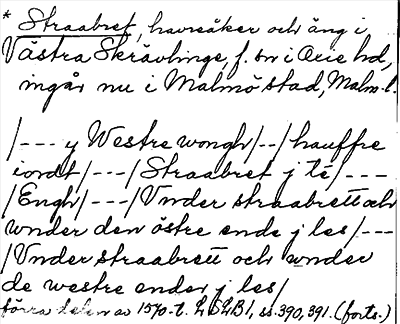 * Straabret, havreåker och äng i
Västra Skrävlinge, f. sn i Oxie hd,
ingår nu i Malmö stad, Malm. l.
/--- y Westre wongh/--/hauffre
iordt/---/Straabret j té/---
/Engh/---/Vnder straabrett och
wnder den östre ende j les/---
/Vnder straabrett och wnder
de westre ender j les/
förra delen av 1570-t. LSLB1, ss. 390, 391. (forts.)